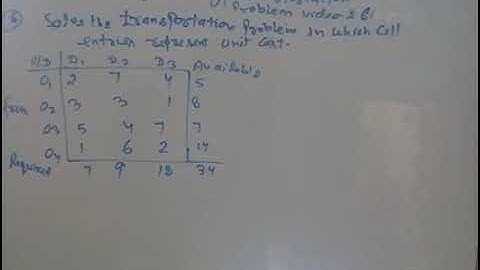 Problem video-2
Solve the transportation Problem in which cell
entries represent unit cost.
D1 D2 D3 Available
O1 2 7 4 5
From O2 3 3 1 8
O3 5 4 7 7
O4 1 6 2 14
Required 7 9 18 34